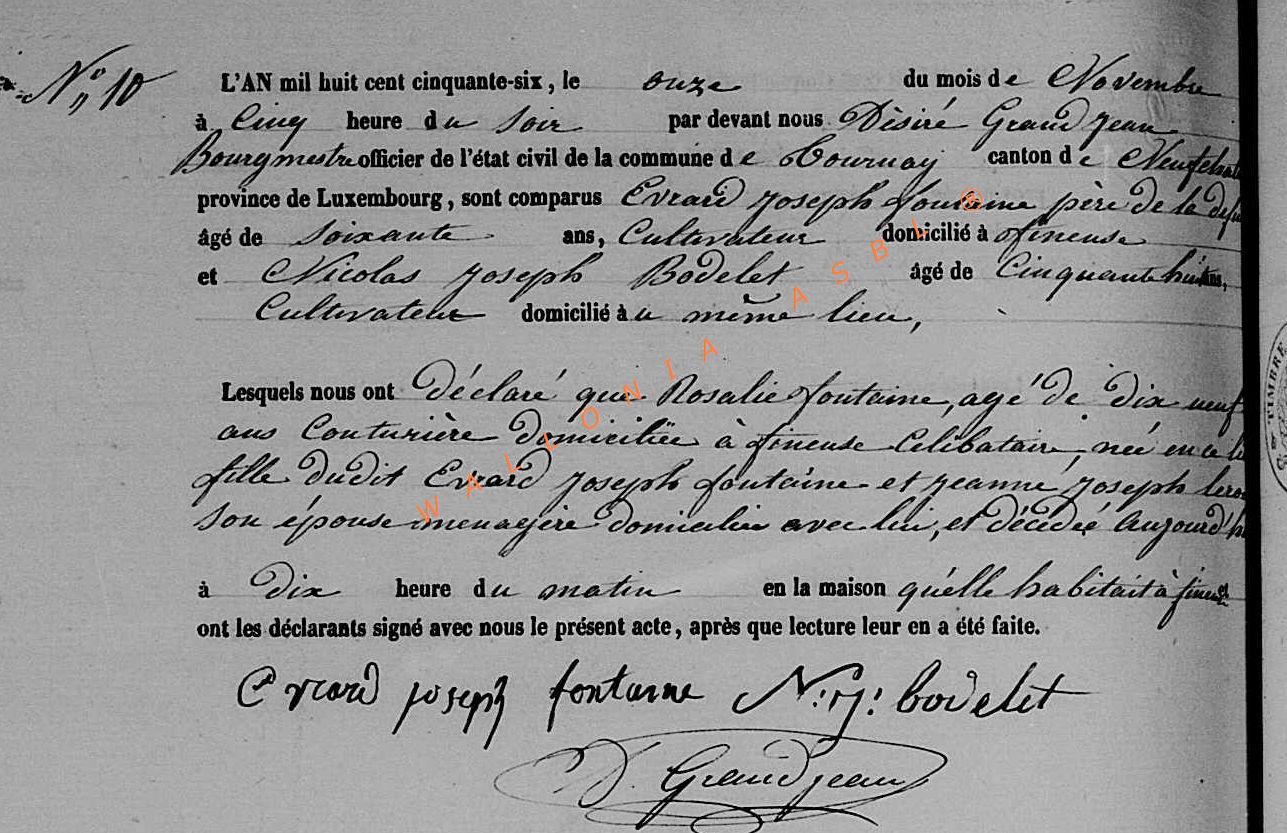 N° 10
L'AN mil huit cent cinquante-six, le onze du mois de Novembre
à Cinq heure du soir par devant nous Désiré Grand Jean
Bourgmestre officier de l'état civil de la commune de Tournay canton de Neufchat
province de Luxembourg, sont comparus Evrard Joseph fontaine père de la defu
âgé de soixante ans, Cultivateur domicilié à fineuse
et Nicolas Joseph Bodelet âgé de Cinquante huit ans,
Cultivateur domicilié à u même lieu,
Lesquels nous ont déclaré que Rosalie fontaine, agé de dix neuf
ans Couturière domiciliée à fineuse Celibataire, née en ce li
fille dudit Evrard Joseph fontaine et Jeanne Joseph
son épouse menagère domiciliée avec lui, et décédée Aujourd'h
à Dix heure du matin en la maison qu'elle habitait à fineuse
ont les déclarants signé avec nous le présent acte, après que lecture leur en a été faite.
Evrard joseph fontaine N: J: bodelet
D. Grandjean
WALLONIA ASBL ®
TIMBRE